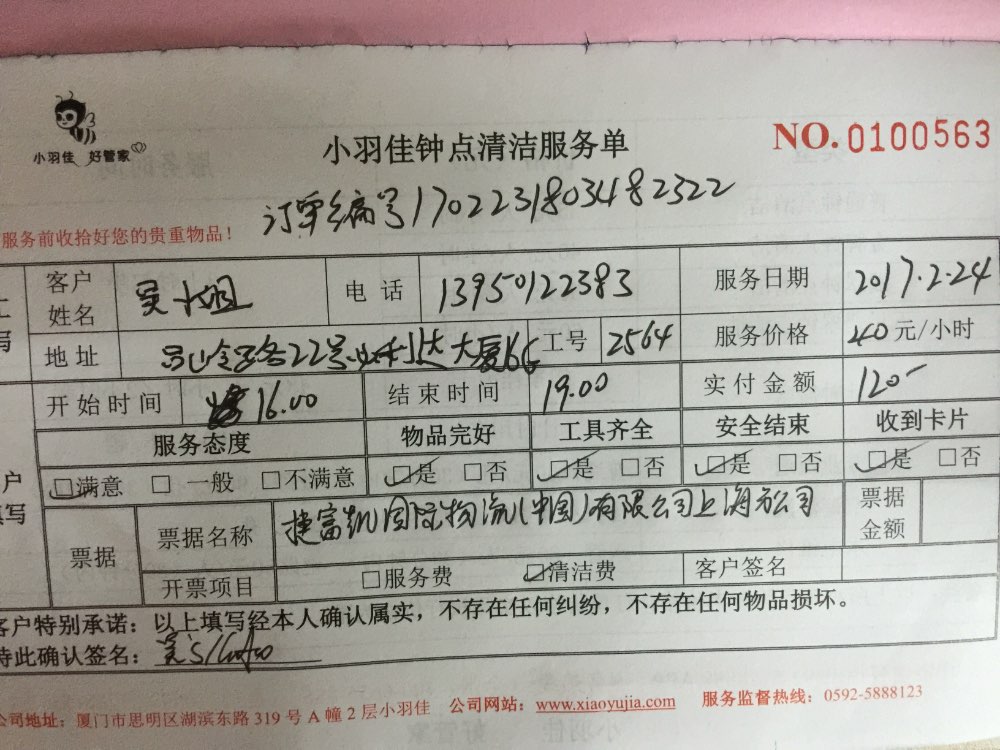 小羽佳 好管家
小羽佳钟点清洁服务单
NO.0100563
订单编号1702231803482322
服务前收拾好您的贵重物品！
客户姓名 吴小姐 电话 13950122383 服务日期 2017.2.24
地址 22号 利达大厦 工号 2564 服务价格 40元/小时
开始时间 16.00 结束时间 19.00 实付金额 120-
服务态度 物品完好 工具齐全 安全结束 收到卡片
☑满意 □一般 □不满意 ☑是 □否 ☑是 □否 ☑是 □否 ☑是 □否
票据 票据名称 捷富凯国际物流(中国)有限公司上海分公司 票据金额
开票项目 □服务费 ☑清洁费 客户签名
客户特别承诺：以上填写经本人确认属实，不存在任何纠纷，不存在任何物品损坏。
特此确认签名：
公司地址：厦门市思明区湖滨东路 319 号 A 幢 2 层小羽佳 公司网站：www.xiaoyujia.com 服务监督热线：0592-5888123